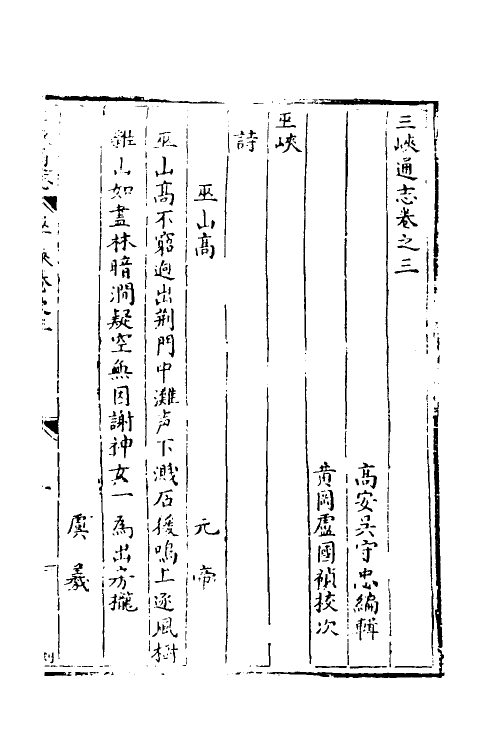 三峽通志卷之三
高安吳守忠編輯
黄岡盧國禎挍次
巫峽
詩
巫山高　元帝
巫山高不窮逈出荆門中灘声下濺石猨鳴上逐風樹
雜山如畫林暗澗疑空無因謝神女一為出房攏
虞羲